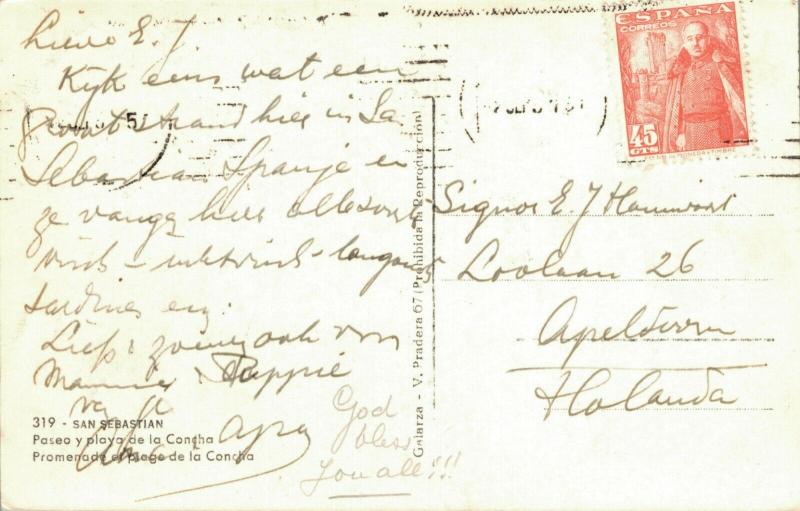 Lieve E. J.
Kijk eens wat een
groot strand hier in San
Sebastian Spanje en
ze vangen hier allesoort
visch - inktvisch - langoust
sardines enz.
Liefs zoowel ook van
Mammie Pappie
van je
Opa
God
bless
You all!!!
319 - SAN SEBASTIAN
Paseo y playa de la Concha
Promenade et plage de la Concha
Galarza - V. Pradera 67 (Prohibida la Reproducción)
ESPAÑA
CORREOS
45
CTS
SEP
Signor E. J.
Loolaan 26
Apeldoorn
Holanda